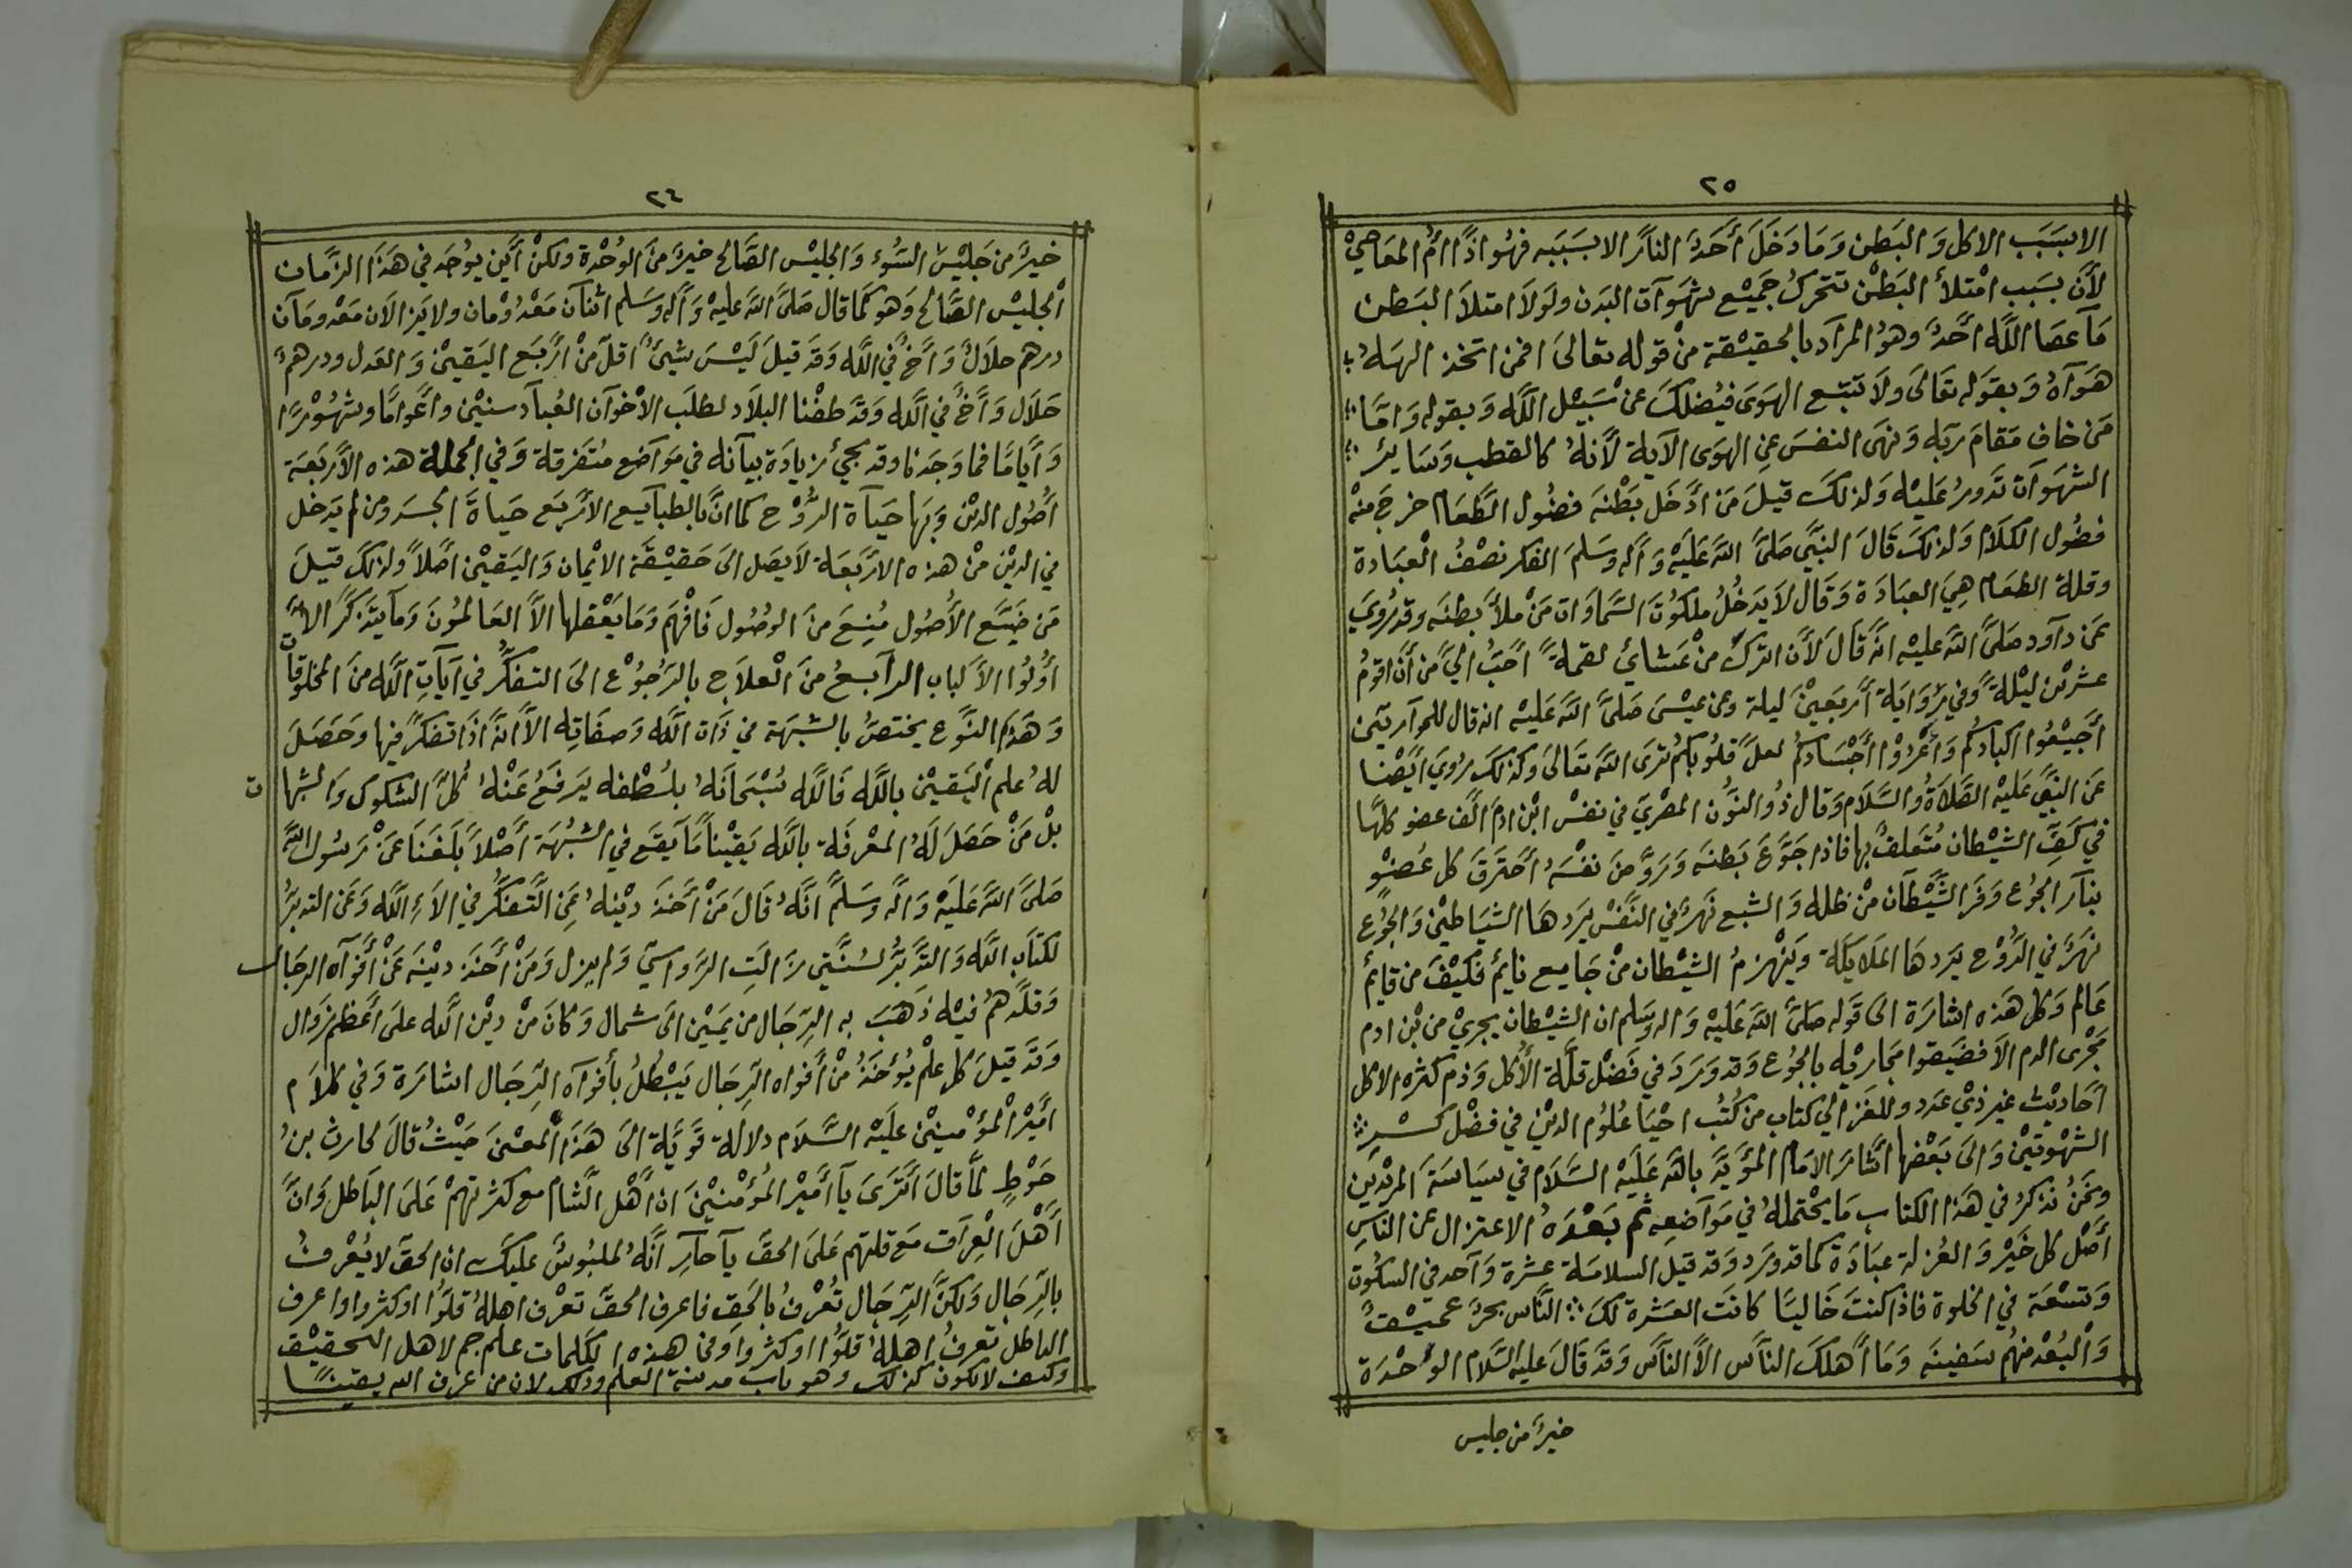 ٢٥
الابسبب الاكل والبطن وما دخل أحد النار الابسببه فهو اذا ام المعاصي
لأن بسبب امتلأ البطن تتحرك جميع شهوات البدن ولولا امتلأ البطن
ما عصا الله أحد وهو المراد بالحقيقة من قوله تعالى افمن اتخذ الهه
هواه وبقوله تعالى ولا تتبع الهوى فيضلك عن سبيل الله وبقوله واما
من خاف مقام ربه ونهى النفس عن الهوى الآية لأنه كالقطب وساير
الشهوات تدور عليه ولذلك قيل من ادخل بطنه فضول الطعام خرج منه
فضول الكلام ولذلك قال النبي صلى الله عليه وآله وسلم الفكر نصف العبادة
وقلة الطعام هي العبادة وقال لا يدخل ملكوت السماوات من ملأ بطنه وقد روي
عن داود صلى الله عليه انه قال لأن اترك من عشائ لقمة احب الي من أن اقوم
عشرين ليلة وفي رواية أربعين ليلة وعن عيسى صلى الله عليه انه قال للحواريين
أجيعوا اكبادكم وأعروا أجسادكم لعل قلوبكم ترى الله تعالى وكذلك روي ايضا
عن النبي عليه الصلاة والسلام وقال ذو النون المصري في نفس ابن ادم الف عضو كلها
في كف الشيطان متعلق بها فاذا جوع بطنه وروض نفسه احترق كل عضو
بنار الجوع وفر الشيطان من ظله والشبع نهر في النفس يردها الشياطين والجوع
نهر في الروح يردها الملايكة وينهزم الشيطان من جايع نايم فكيف من قايم
عالم وكل هذه اشارة الى قوله صلى الله عليه واله وسلم ان الشيطان يجري من بن ادم
مجرى الدم الا فضيقوا مجاريه بالجوع وقد ورد في فضل قلة الأكل وذم كثره الاكل
احاديث غير ذي عدد وللغزالي كتاب من كتب احيا علوم الدين في فضل كسر
الشهوتين والى بعضها اشار الامام المؤيد بالله عليه السلام في سياسة المريدين
ونحن نذكر في هذا الكتاب ما يحتمله في مواضعه ثم بعده الاعتزال عن الناس
أصل كل خير والعزلة عبادة كما قد ورد وقد قيل السلامة عشرة وآحد في السكوت
وتسعة في الخلوة فاذا كنت خاليا كانت العشرة لك الناس بحر عميق
والبعد منهم سفينه وما أهلك الناس الا الناس وقد قال عليه السلام الوحدة
خير من جليس
٢٤
خير من جليس السوء والجليس الصالح خير من الوحدة ولكن أين يوجد في هذا الزمان
الجليس الصالح وهو كما قال صلى الله عليه وآله وسلم اثنان معدومان ولا يزالان معدومان
درهم حلال وأخ في الله وقد قيل ليس شيئ اقل من أربع اليقين والعدل ودرهم
حلال وأخ في الله وقد طفنا البلاد لطلب الاخوان العباد سنين وأعواما وشهورا
وأياما فما وجدنا وقد يجئ زيادة بيانه في مواضع متفرقة وفي الجملة هذه الأربعة
أصول الدين وبها حياة الروح كما ان بالطبايع الأربع حياة الجسد ومن لم يدخل
في الدين من هذه الاربعة لا يصل الى حقيقة الايمان واليقين اصلا ولذلك قيل
من ضيع الأصول منع من الوصول فافهم وما يعقلها الا العالمون وما يتذكر الا
أولوا الألباب الرابع من العلاج بالرجوع الى التفكر في آيات الله من المخلوقات
وهذا النوع يختص بالشبهة في ذات الله وصفاته الا انه اذا تفكر فيها وحصل
له علم اليقين بالله فالله سبحانه بلطفه يرفع عنه كل الشكوك والشبهات
بل من حصل له المعرفة بالله يقينا ما يقع في الشبهة أصلا بلغنا عن رسول الله
صلى الله عليه واله وسلم انه قال من أخذ دينه عن التفكر في الاء الله وعن التدبر
لكتاب الله والتدبر لسنتي زالت الرواسي ولم يزل ومن أخذ دينه عن أفواه الرجال
وقلدهم فيه ذهب به الرجال من يمين الى شمال وكان من دين الله على أعظم زوال
وقد قيل كل علم يؤخذ من أفواه الرجال يبطل بأفواه الرجال اشارة وفي كلام
أمير المؤمنين عليه السلام دلالة قوية الى هذا المعنى حيث قال لحارث بن
حوط لما قال أترى يا أمير المؤمنين ان أهل الشام مع كثرتهم على الباطل وان
أهل العراق مع قلتهم على الحق يا حار انه لملبوس عليك ان الحق لا يعرف
بالرجال ولكن الرجال تعرف بالحق فاعرف الحق تعرف اهله قلوا اوكثروا واعرف
الباطل تعرف اهله قلوا اوكثروا وفي هذه الكلمات علم جم لاهل التحقيق
وكيف لا يكون كذلك وهو باب مدينة العلم وذلك لان من عرف الله يقينا